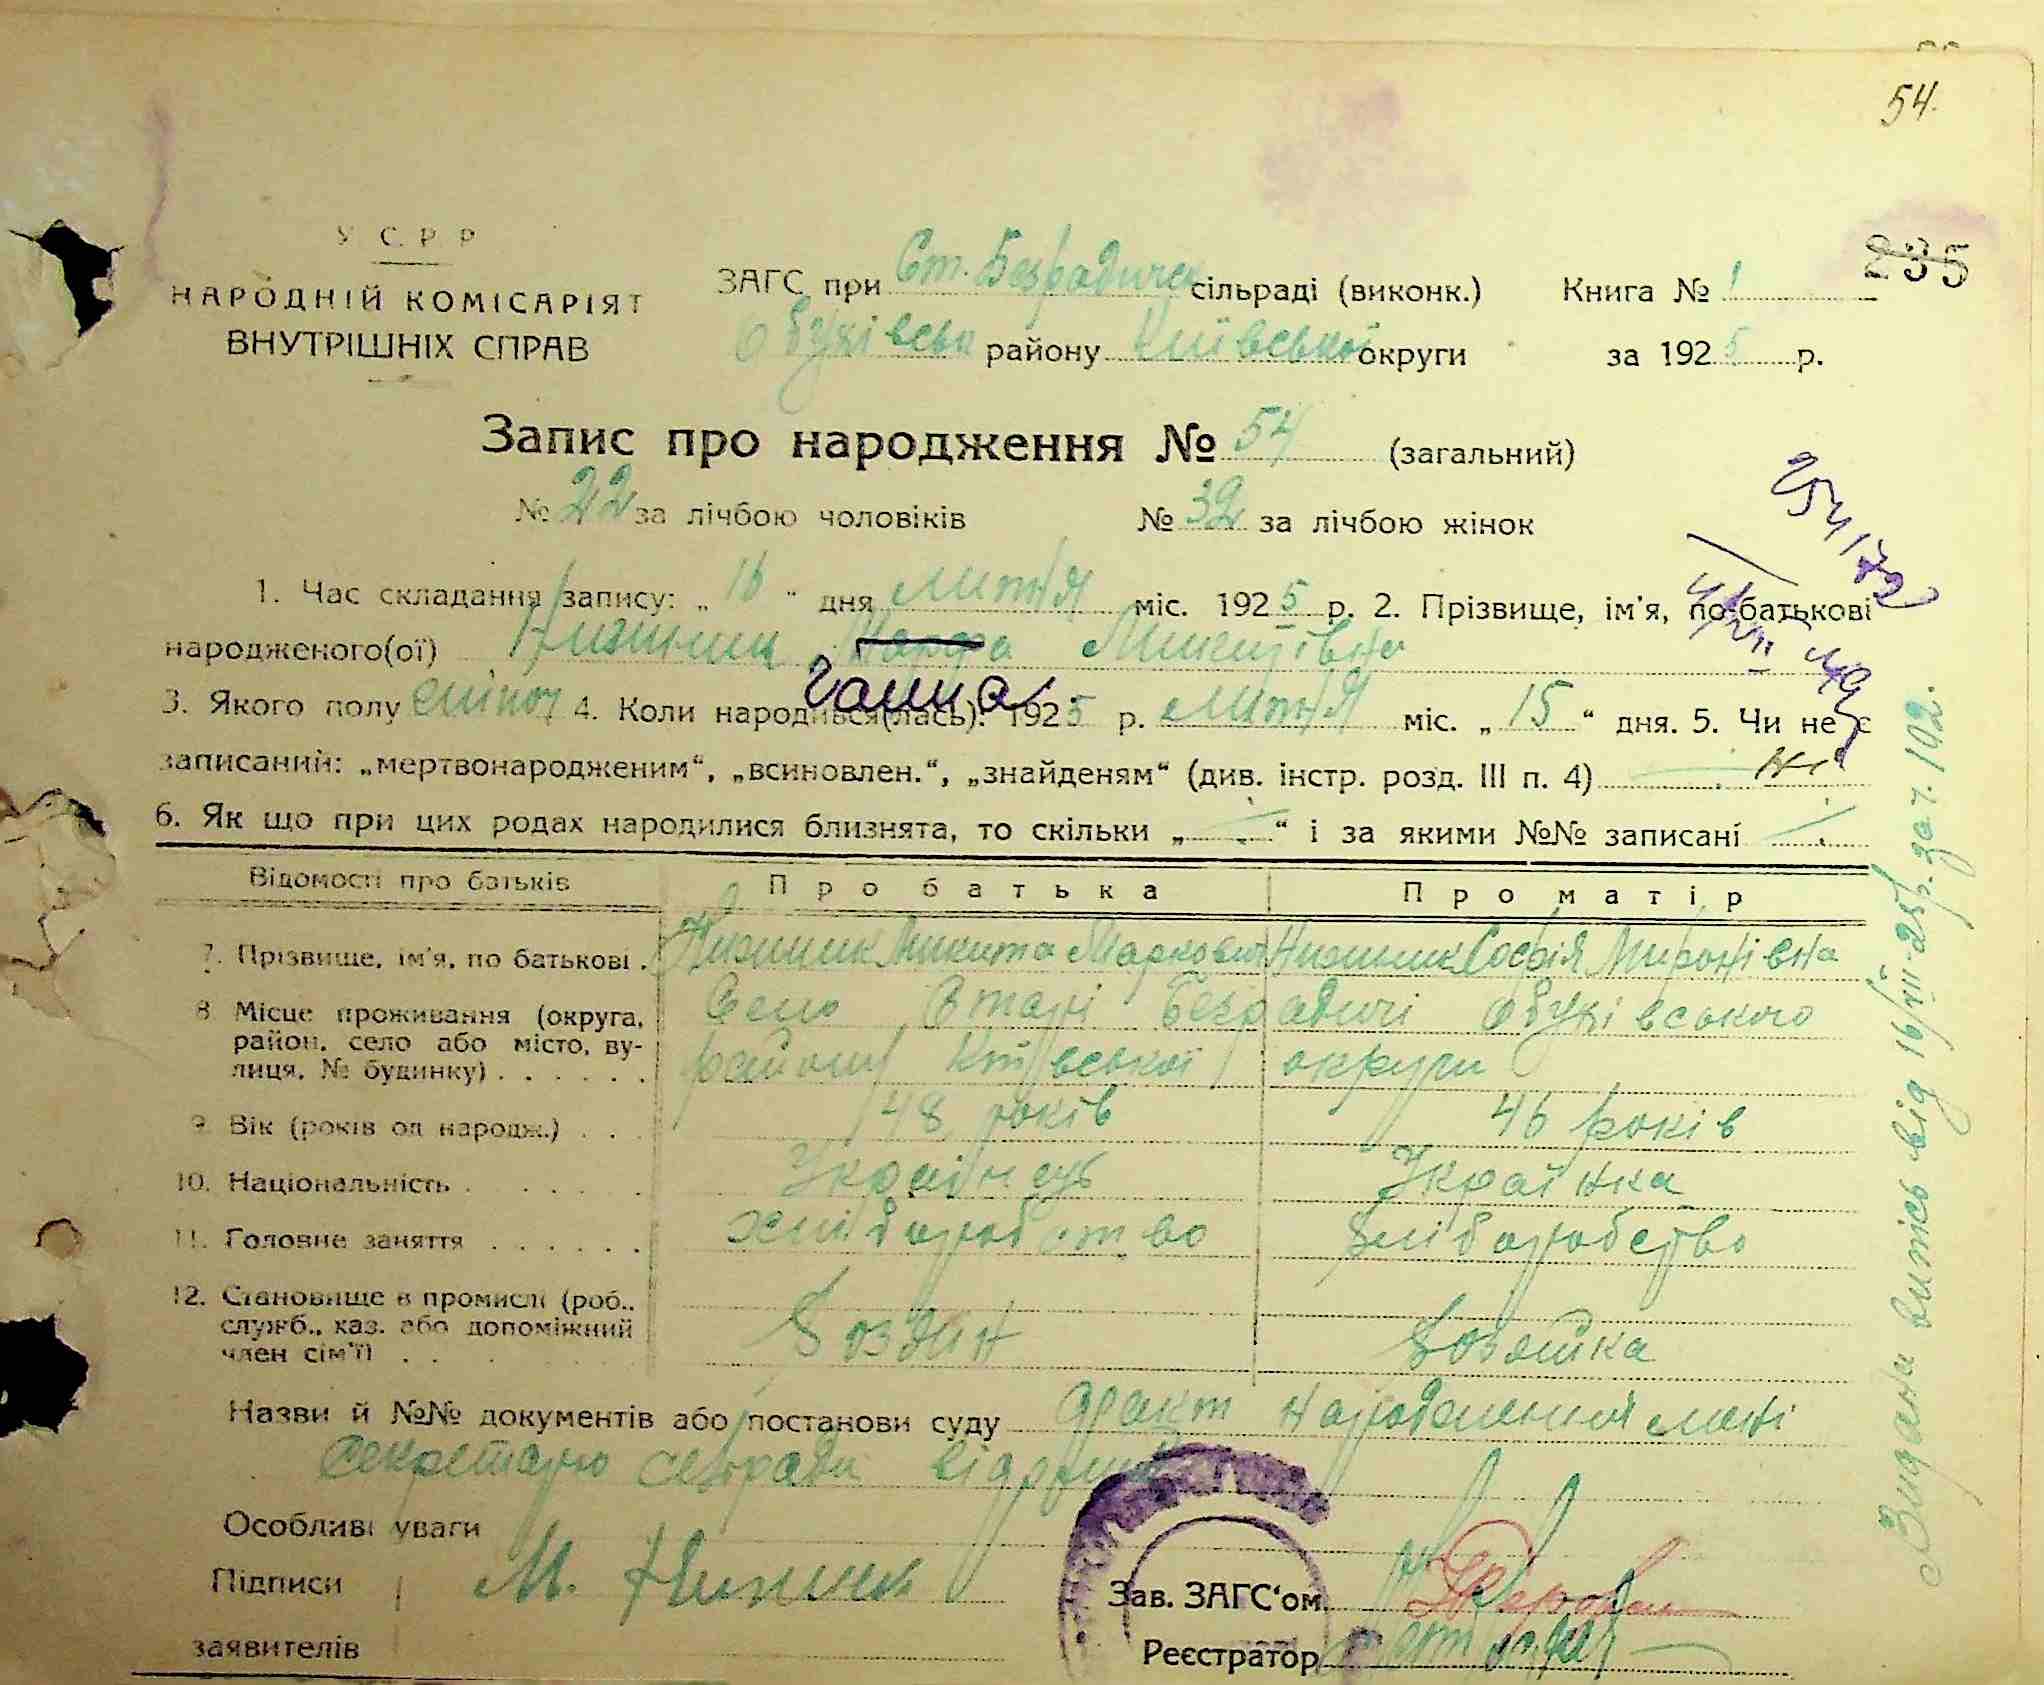 54.
У С Р Р
НАРОДНІЙ КОМІСАРІЯТ
ВНУТРІШНІХ СПРАВ
ЗАГС при Ст. Безрадичськ сільраді (виконк.) Книга № 1
235
Обухівськ району Київської округи за 1925 р.
Запис про народження № 54 (загальний)
№ 22 за лічбою чоловіків № 32 за лічбою жінок
254/72
1. Час складання запису: „ 16 “ дня липня міс. 1925 р. 2. Прізвище, ім'я, по-батькові
народженого(ої) Нижник Марфа Микитівна
Ганна
3. Якого полу жіноч 4. Коли народився(лась): 1925 р. липня міс. „ 15 “ дня. 5. Чи не є
записаний: „мертвонародженим“, „всиновлен.“, „знайденям“ (див. інстр. розд. III п. 4) Ні
6. Як що при цих родах народилися близнята, то скільки „ - “ і за якими №№ записані
Відомості про батьків Про батька Про матір
7. Прізвище, ім'я, по батькові . Нижник Микита Маркович Нижник Софія Миронівна
8 Місце проживання (округа, Село Старі Безрадичі Обухівського
район, село або місто, ву- району Київської округи
лиця, № будинку) . . . . . .
9 Вік (років од народж.) . . . 48 років 46 років
10. Національність . . . . . . . Українець Українка
11. Головне заняття . . . . . . хліборобство хліборобство
12. Становище в промислі (роб.,
служб., хаз. або допоміжний Хозяїн Хозяйка
член сім'ї) . .
Назви й №№ документів або постанови суду факт народження мені
секретарю сельради відомий
Особливі уваги
Підписи М. Нижник Зав. ЗАГС'ом
заявителів Реєстратор
Видана випись від 16/VIII-25р. за ч. 102.